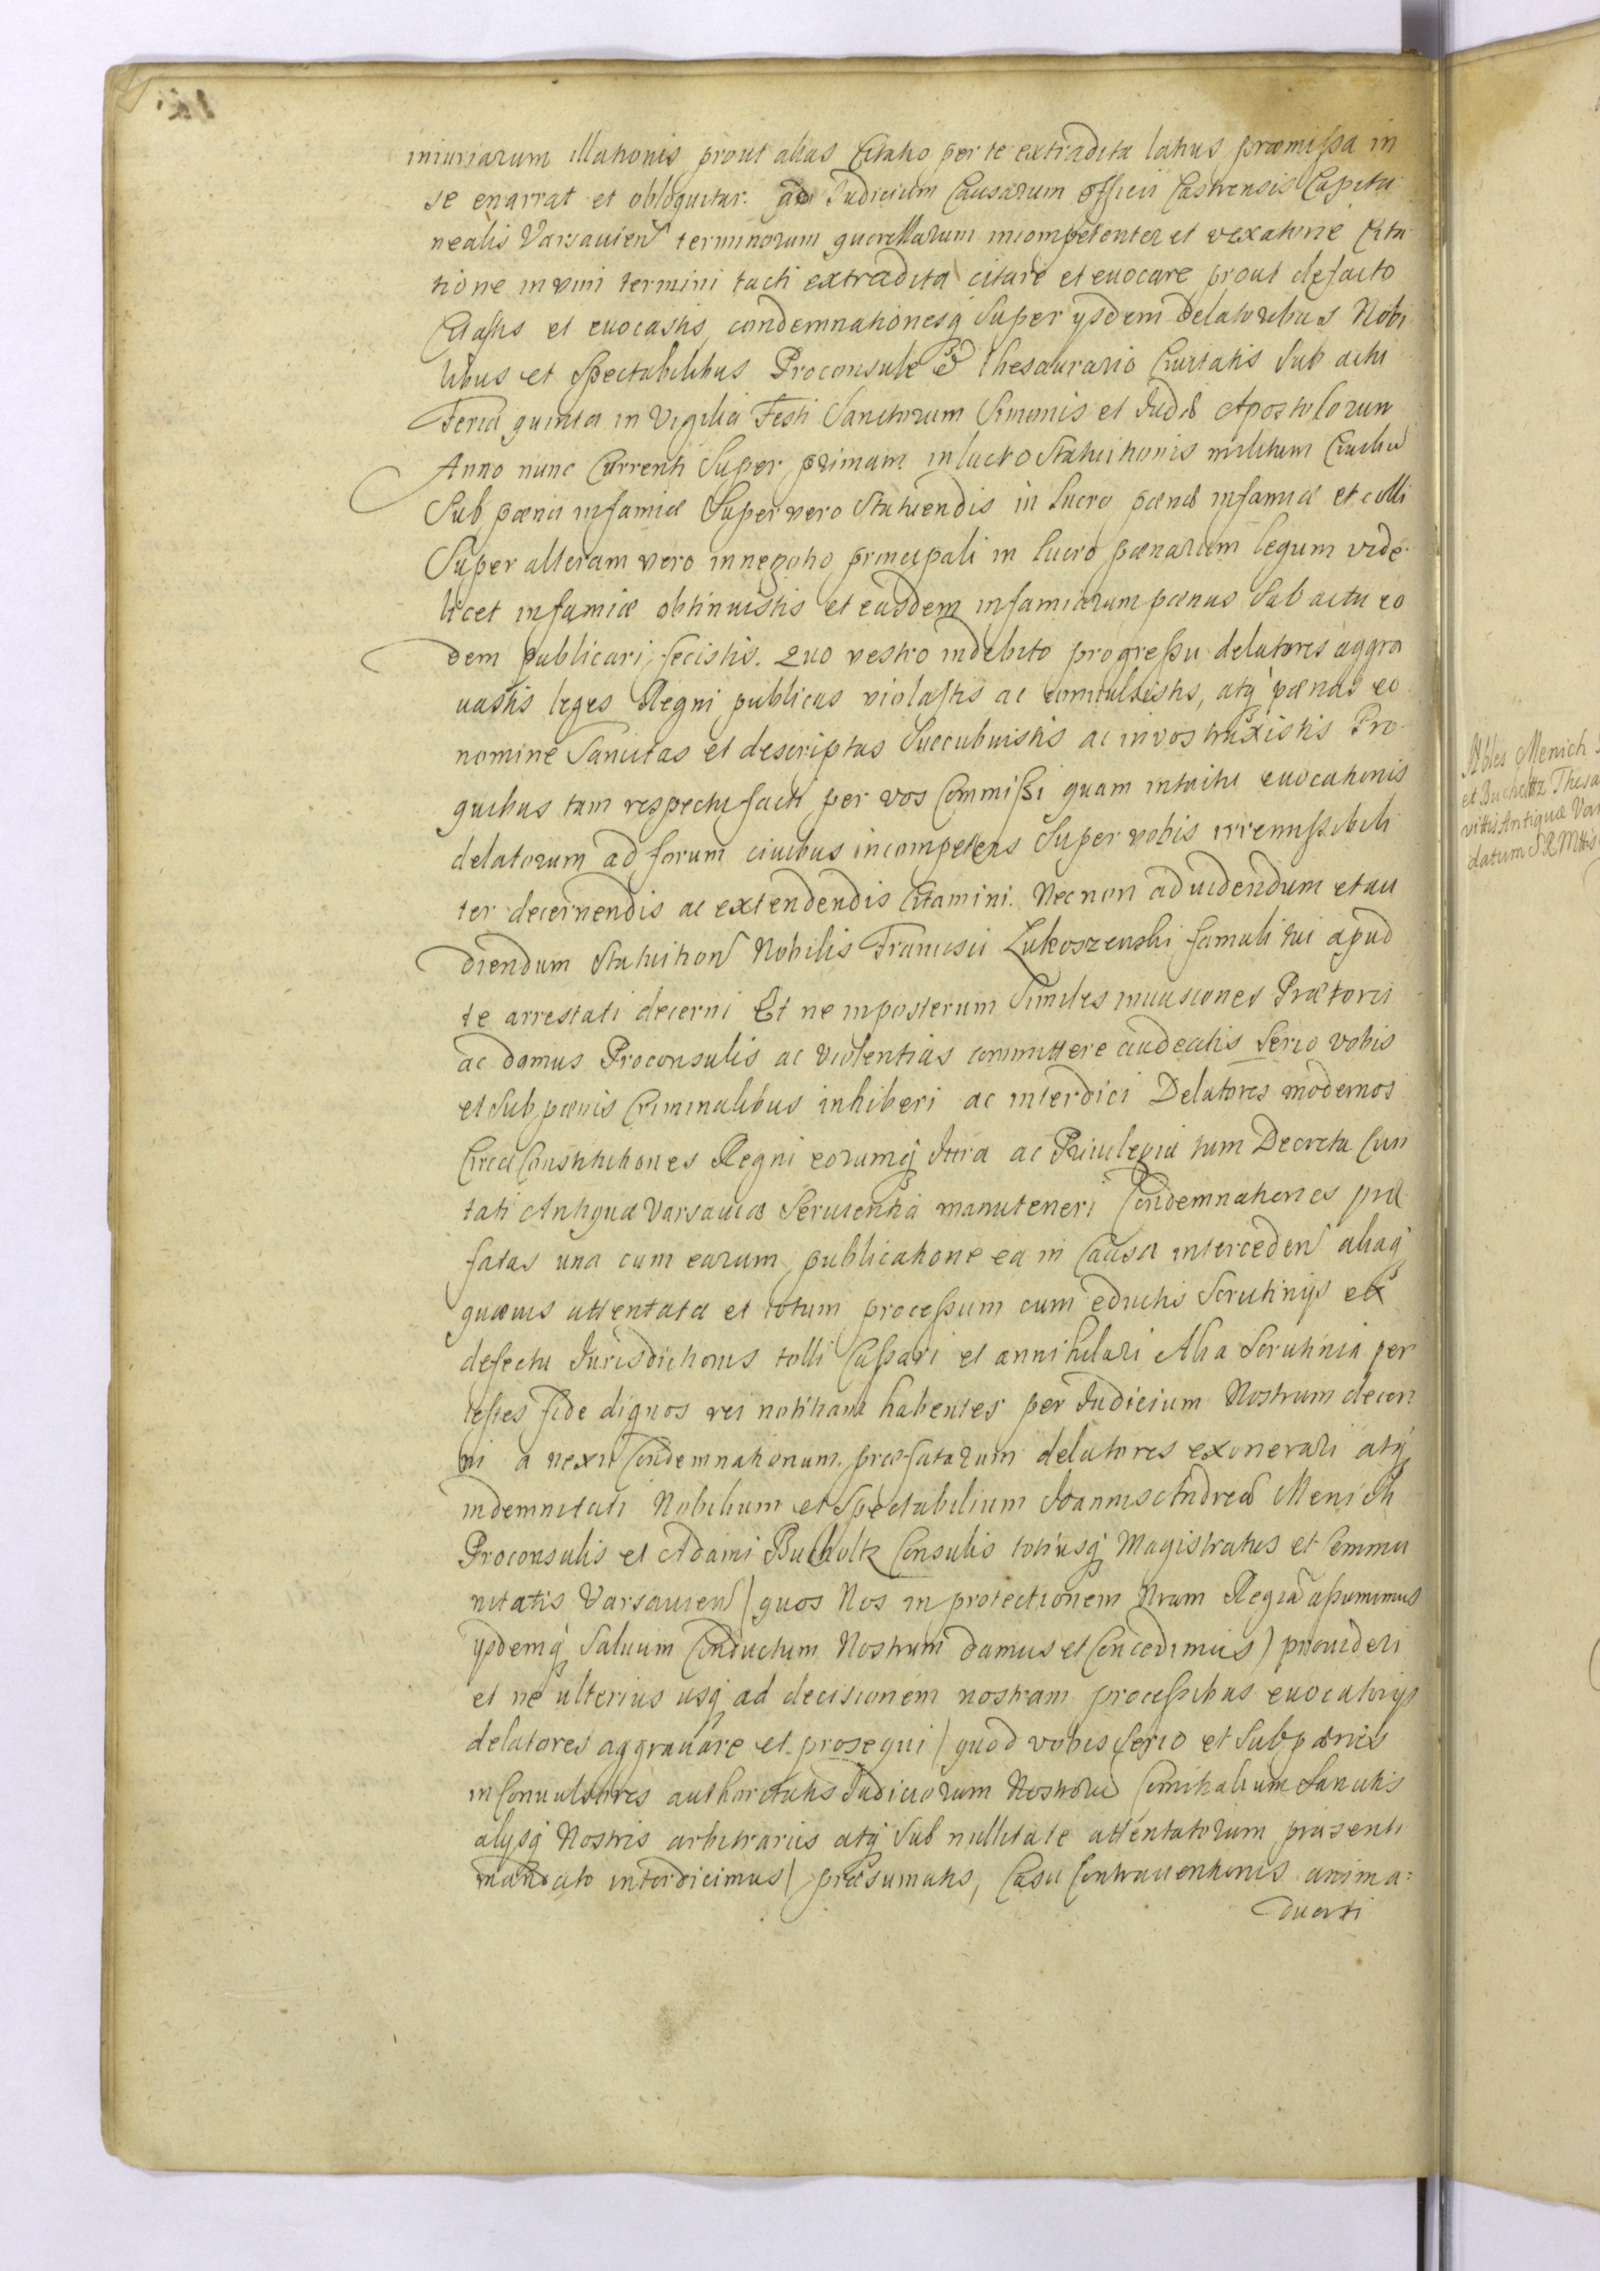 iniuriarum illationis prout alias Citatio per te extradita latius præmissa in
se enarrat et obloquitur. ad Iudicium Causarum Officii Castrensis Capita
nealis Varsauien terminorum querellarum incompetenter et vexatorie Cita
tione in vim termini tacti extradita citare et euocare prout de facto
Citastis et euocastis, condemnationesq super ysdem Delatoribus Nobi
libus et Spectabilibus Proconsule & Thesaurario Ciuitatis Sub actu
Feria quinta in Vigilia Festi Sanctorum Simonis et Iudæ Apostolorum
Anno nunc Currenti Super primam in lucro Statuitionis militum Ciuiliu
Sub pæna infamiæ Super vero Statuendis in lucro pænæ infamiæ et colli
Super alteram vero in negotio principali in lucro pænarum legum vide
licet infamiæ obtinuistis et easdem infamiarum pænas Sub actu eo
dem publicari fecistis. Quo vestro indebito progressu delatores aggra
uastis leges Regni publicas violastis ac conuulsistis, atq pænas eo
nomine Sancitas et descriptas Succubuistis ac in vos traxistis Pro
quibus tam respectu facti per vos Commissi quam intuitu euocationis
delatorum ad forum ciuibus incompetens Super vobis irremissibili
ter decernendis ac extendendis Citamini. Nec non ad videndum et au
diendum Statuition Nobilis Francisci Lukoszewski famuli tui apud
te arrestati decerni Et ne inposterum Similes inuasiones Prætorii
ac domus Proconsulis ac violentias committere audeatis Serio vobis
et Sub pænis Criminalibus inhiberi ac interdici Delatores modernos
Circa Constitutiones Regni eorumq Iura ac Priuilegia tum Decreta Ciui
tati Antiquæ Varsauiæ Seruientia manuteneri Condemnationes præ
fatas una cum earum publicatione ea in Causa interceden aliaq
quæuis attentata et totum processum cum eductis Scrutinijs ex
defectu Iurisdictionis tolli Cassari et annihilari Alia Scrutinia per
testes fide dignos rei notitiam habentes per Iudicium Nostrum decer
ni a nexu Condemnationum præfatarum delatores exonerari atq
indemnitati Nobilium et Spectabilium Ioannis Andreæ Menich
Proconsulis et Adami Bucholtz Consulis totiusq Magistratus et Commu
nitatis Varsauien (quos Nos in protectionem Nram Regia assumimus
ysdemq Saluum Conductum Nostrum damus et Concedimus) prouideri
et ne ulterius usq ad decisionem nostram processibus euocatorijs
delatores aggrauare et prosequi (quod vobis serio et Sub pænis
in Conuulsores authoritatis Iudiciorum Nostroru Comitialium Sancitis
alijsq Nostris arbitrariis atq Sub nullitate attentatorum præsenti
mandato interdicimus) præsumatis, Casu Contrauentionis anima=
duerti
Nbles Menich
et Bucholtz Thesa
vittis Antiquæ Var
datum S R Mttis